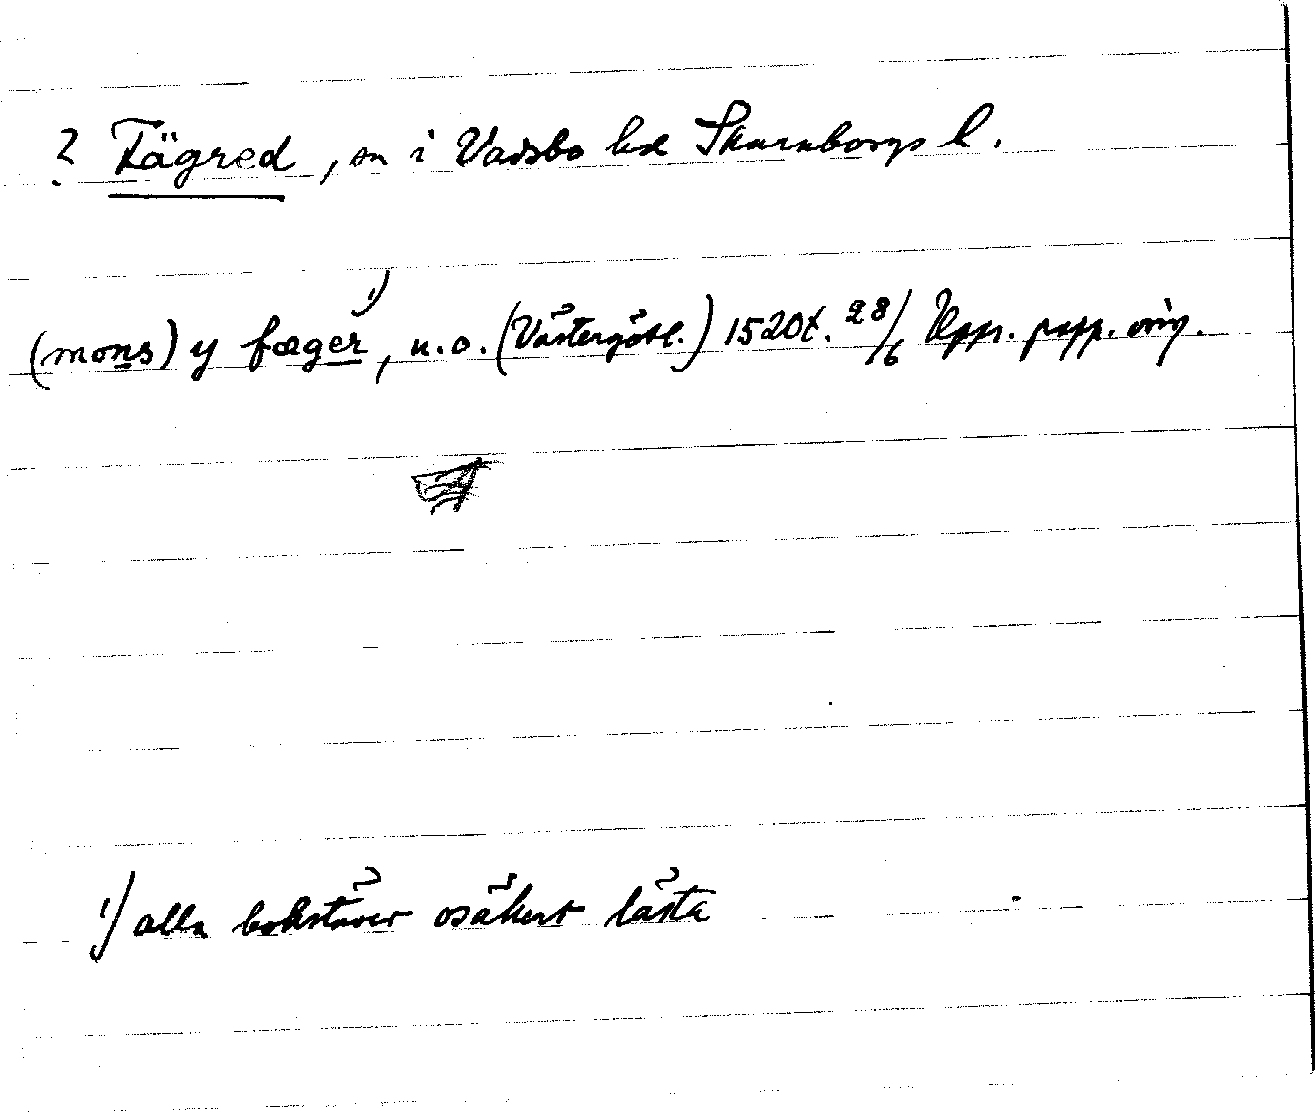 ? Fägred, sn i Vadsbo hd Skaraborgs l.
(mons) y fæger 1), u.o. (Västergötl.) 1520t. 28/6 Uppr. papp. orig.
1) alla bokstäver osäkert lästa